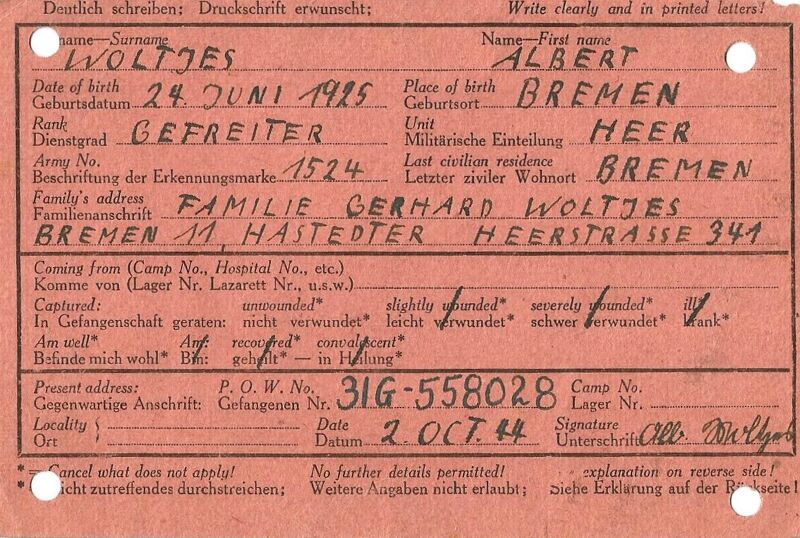 Deutlich schreiben; Druckschrift erwunscht; Write clearly and in printed letters!
name—Surname WOLTJES Name—First name ALBERT
Date of birth Place of birth
Geburtsdatum 24. JUNI 1925 Geburtsort BREMEN
Rank Unit
Dienstgrad GEFREITER Militärische Einteilung HEER
Army No. Last civilian residence
Beschriftung der Erkennungsmarke 1524 Letzter ziviler Wohnort BREMEN
Family's address
Familienanschrift FAMILIE GERHARD WOLTJES
BREMEN 11, HASTEDTER HEERSTRASSE 341
Coming from (Camp No., Hospital No., etc.)
Komme von (Lager Nr. Lazarett Nr., u.s.w.)
Captured: unwounded* slightly wounded* severely wounded* ill*
In Gefangenschaft geraten: nicht verwundet* leicht verwundet* schwer verwundet* krank*
Am well* Am: recovered* convalescent*
Befinde mich wohl* Bin: geheilt* — in Heilung*
Present address: P. O. W. No. Camp No.
Gegenwartige Anschrift: Gefangenen Nr. 31G-558028 Lager Nr.
Locality Date Signature
Ort Datum 2 OCT. 44 Unterschrift Alb. Woltjes
* = Cancel what does not apply! No further details permitted! explanation on reverse side!
* icht zutreffendes durchstreichen; Weitere Angaben nicht erlaubt; Siehe Erklärung auf der Rückseite!